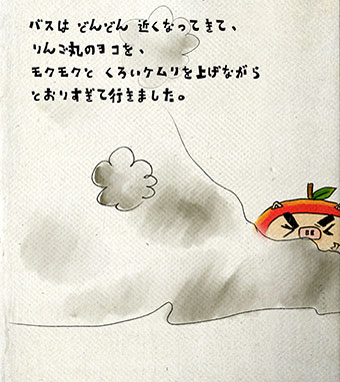 バスは どんどん 近くなってきて、
りんご丸のヨコを、
モクモクと くろいケムリを上げながら
とおりすぎて行きました。